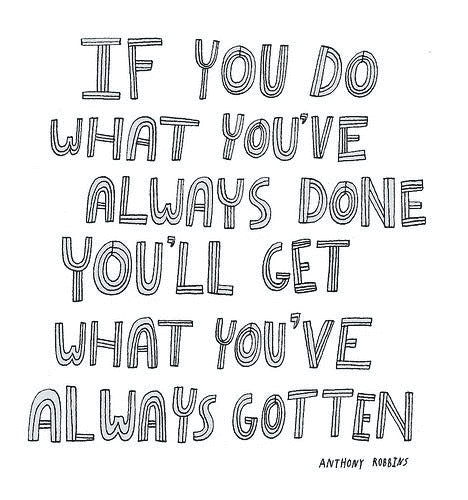 IF YOU DO
WHAT YOU'VE
ALWAYS DONE
YOU'LL GET
WHAT YOU'VE
ALWAYS GOTTEN
ANTHONY ROBBINS